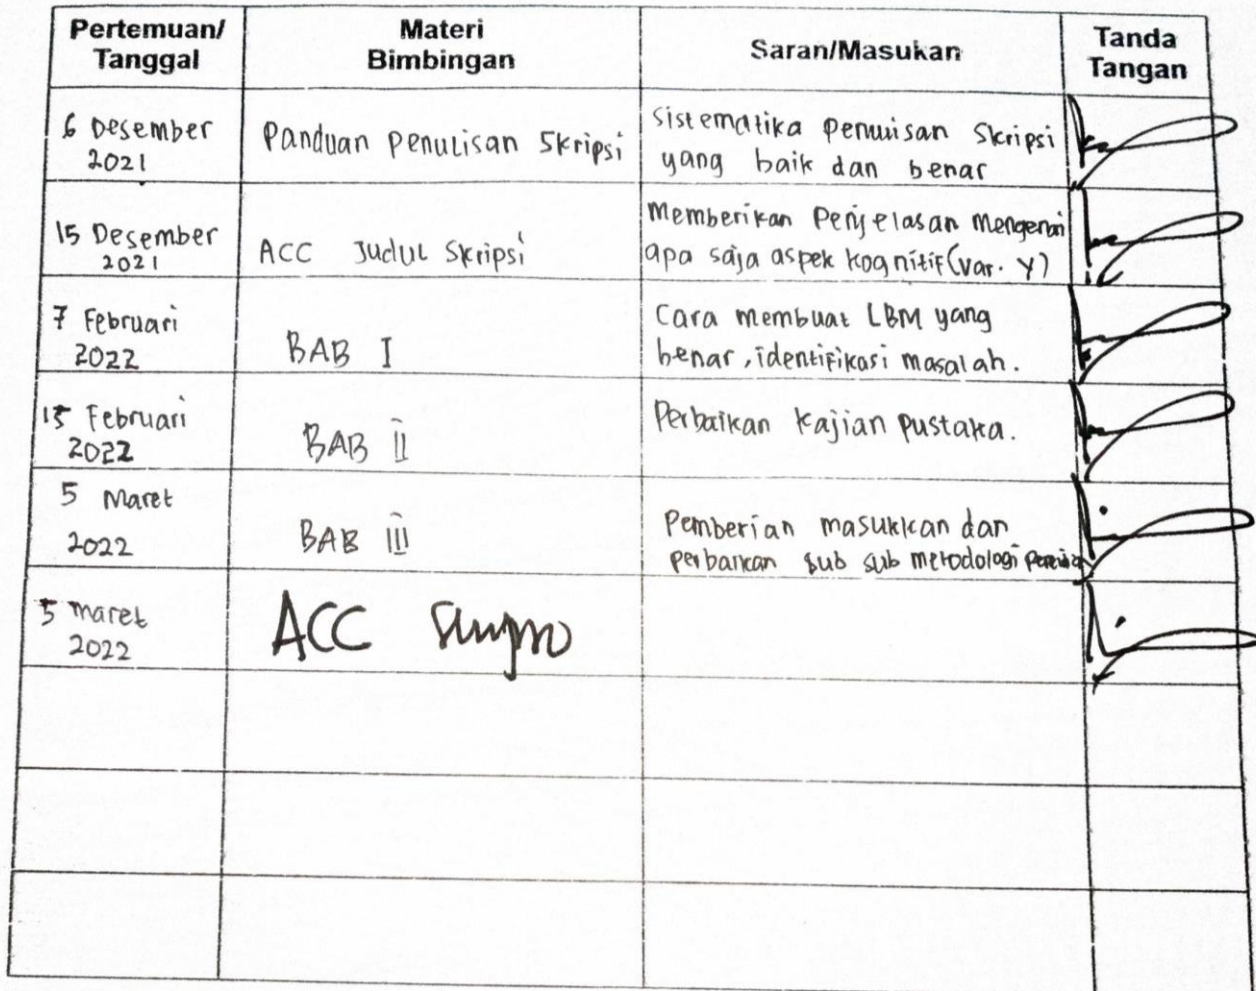 Pertemuan/
Tanggal
Materi
Bimbingan
Saran/Masukan
Tanda
Tangan
6 Desember
2021
Panduan Penulisan Skripsi
Sistematika Penulisan Skripsi
yang baik dan benar
15 Desember
2021
ACC Judul Skripsi
Memberikan Penjelasan Mengenai
apa saja aspek kognitif (var. Y)
7 Februari
2022
BAB I
Cara membuat LBM yang
benar, identifikasi masalah.
15 Februari
2022
BAB II
Perbaikan Kajian Pustaka.
5 Maret
2022
BAB III
Pemberian masukkan dan
perbaikan sub sub metodologi
5 Maret
2022
ACC